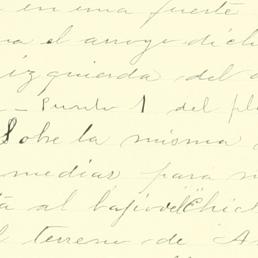 en una fuerte
el arroyo dich
izquierda del
- Punto 1 del pl
Sobre la misma
medias para
al bajio del "Chic
terreno de